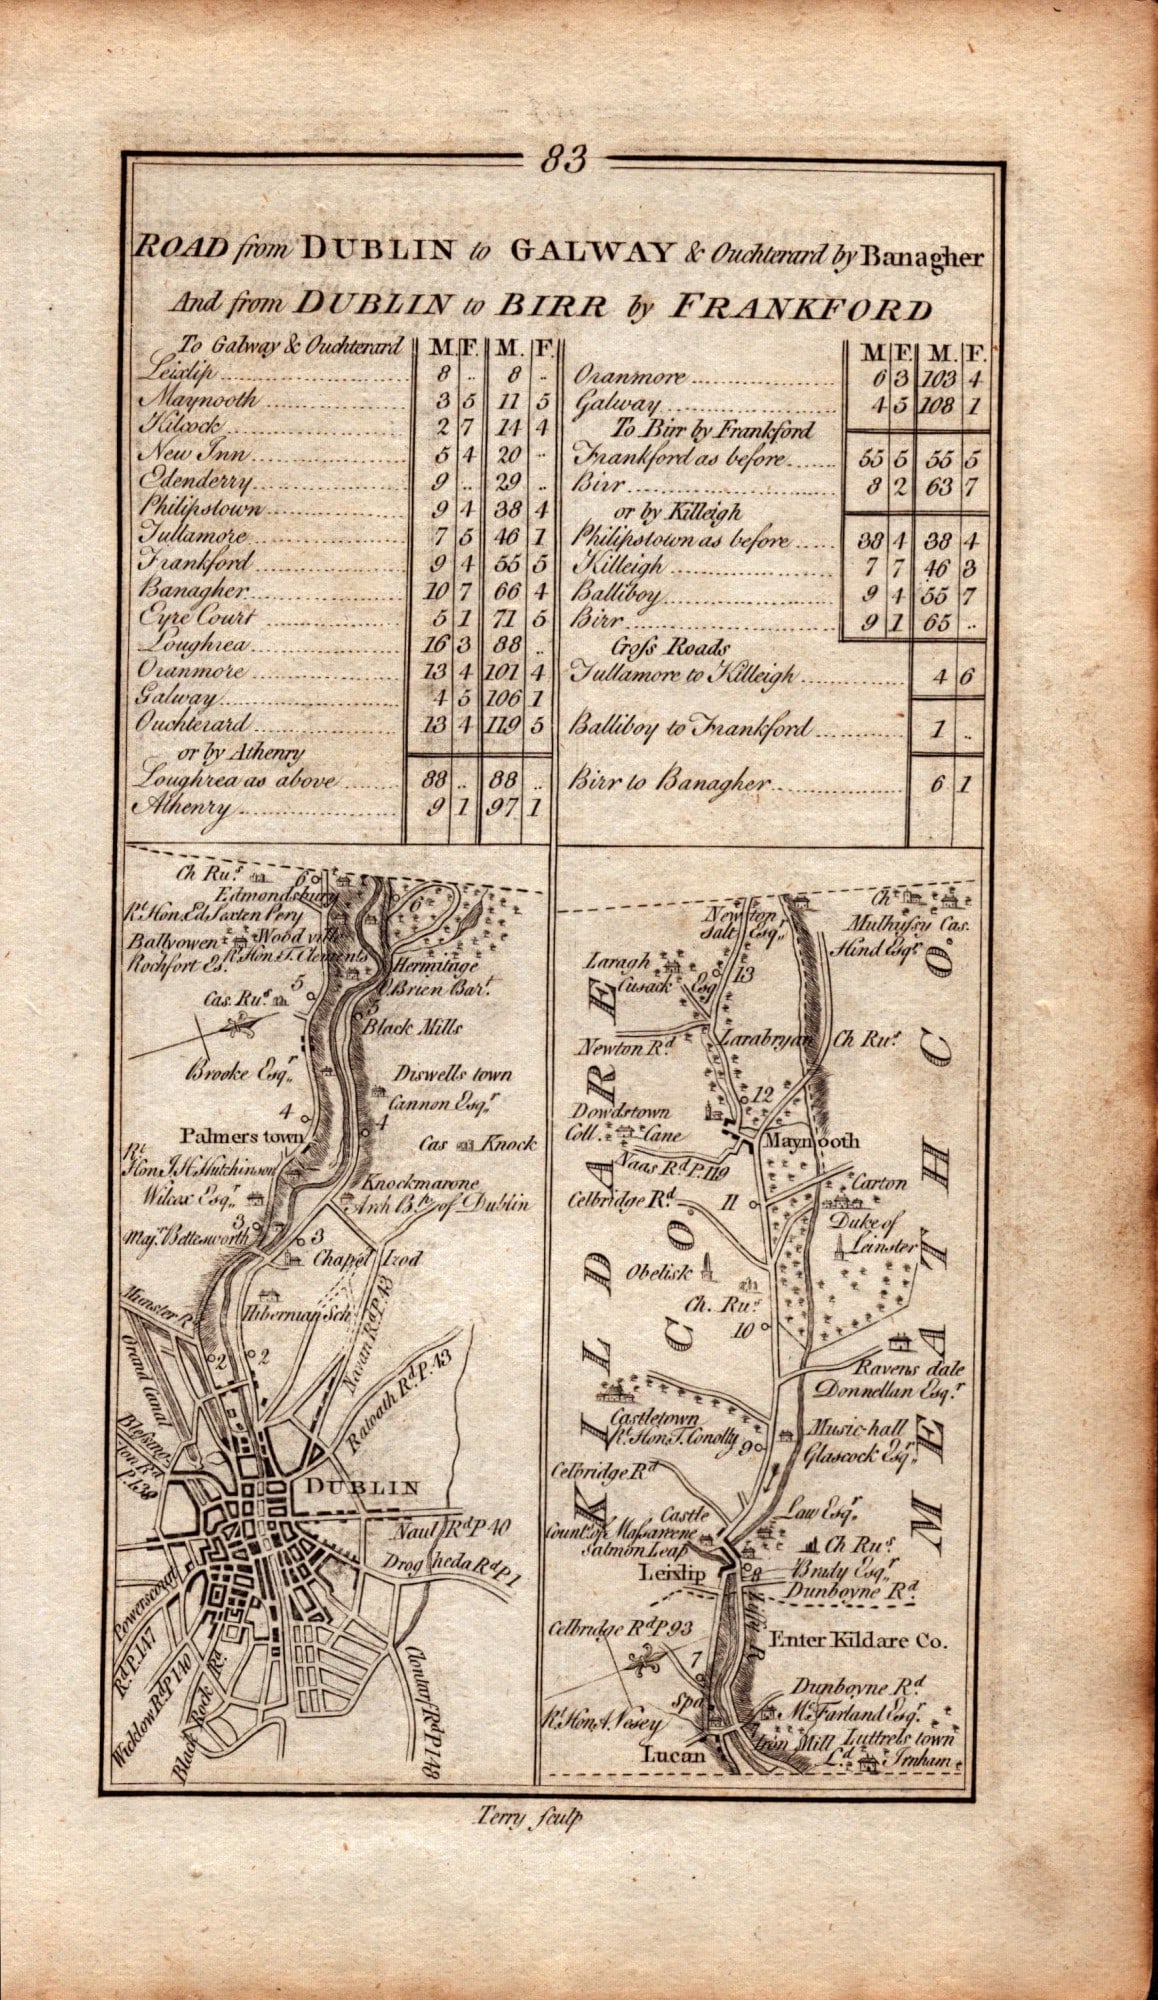 83
ROAD from DUBLIN to GALWAY & Ouchterard by Banagher
And from DUBLIN to BIRR by FRANKFORD
To Galway & Ouchterard M. F. M. F.
Leixlip 8 .. 8 ..
Maynooth 3 5 11 5
Kilcock 2 7 14 4
New Inn 5 4 20 ..
Edenderry 9 .. 29 ..
Philipstown 9 4 38 4
Tullamore 7 5 46 1
Frankford 9 4 55 5
Banagher 10 7 66 4
Eyre Court 5 1 71 5
Loughrea 16 3 88 ..
Oranmore 13 4 101 4
Galway 4 5 106 1
Ouchterard 13 4 119 5
or by Athenry
Loughrea as above 88 .. 88 ..
Athenry 9 1 97 1
M F. M. F.
Oranmore 6 3 103 4
Galway 4 5 108 1
To Birr by Frankford
Frankford as before 55 5 55 5
Birr 8 2 63 7
or by Killeigh
Philipstown as before 38 4 38 4
Killeigh 7 7 46 3
Balliboy 9 4 55 7
Birr 9 1 65 ..
Cross Roads
Tullamore to Killeigh 4 6
Balliboy to Frankford 1 ..
Birr to Banagher 6 1
Ch Rus. 6
Edmondsbury
Rt. Hon. Ed Sexten Pery 6
Ballyowen Wood ville
Rochfort Es. Rt Hon T. Clements
Hermitage
O'Brien Bart.
Cas. Rus. 5
5
Black Mills
Brooke Esqr.
Diswells town
Cannon Esqr.
4
4
Palmers town
Cas Knock
Rt
Hon J H Hutchinson
Knockmarone
Wilcox Esqr.
Arch Bk. of Dublin
3
Majr. Bettesworth
3
Chapel Izod
Hibernian Sch
Munster R
Navan Rd P. 43
2
2
Grand Canal
Ratoath Rd. P. 43
Blessing-
ton Rd
P. 138
DUBLIN
Naul Rd P 40
Drogheda Rd P. 1
Powerscourt
Rd P. 147
Wicklow Rd P 140
Black Rock Rd.
Clontarf Rd P 148
Ch
Newton
Salt Esqr.
Mulhussy Cas.
Hind Esqr.
Laragh
Cusack Esq
13
Larabryan
Ch Rus.
Newton Rd.
12
Dowdstown
Coll. Cane
Maynooth
Naas Rd P. 119
Carton
Celbridge Rd.
11
Duke of
Leinster
Obelisk
Ch. Rus.
10
Ravens dale
Donnellan Esq.r
Castletown
Rt. Hon T. Conolly
9
Music-hall
Glascock Esqr.
Celbridge Rd
Castle
Law Esqr.
Counts. of Massareene
Salmon Leap
Ch Rus.
Brady Esqr.
Leixlip
8
Dunboyne Rd.
Liffy R
Celbridge Rd P. 93
Enter Kildare Co.
7
Dunboyne Rd.
Spa
Mc. Farland Esqr.
Rt. Hon A. Vesey
Iron Mill Luttrels town
Lucan
Ld. Irnham
KILDARE
CO.
MEATH CO.
Terry sculp